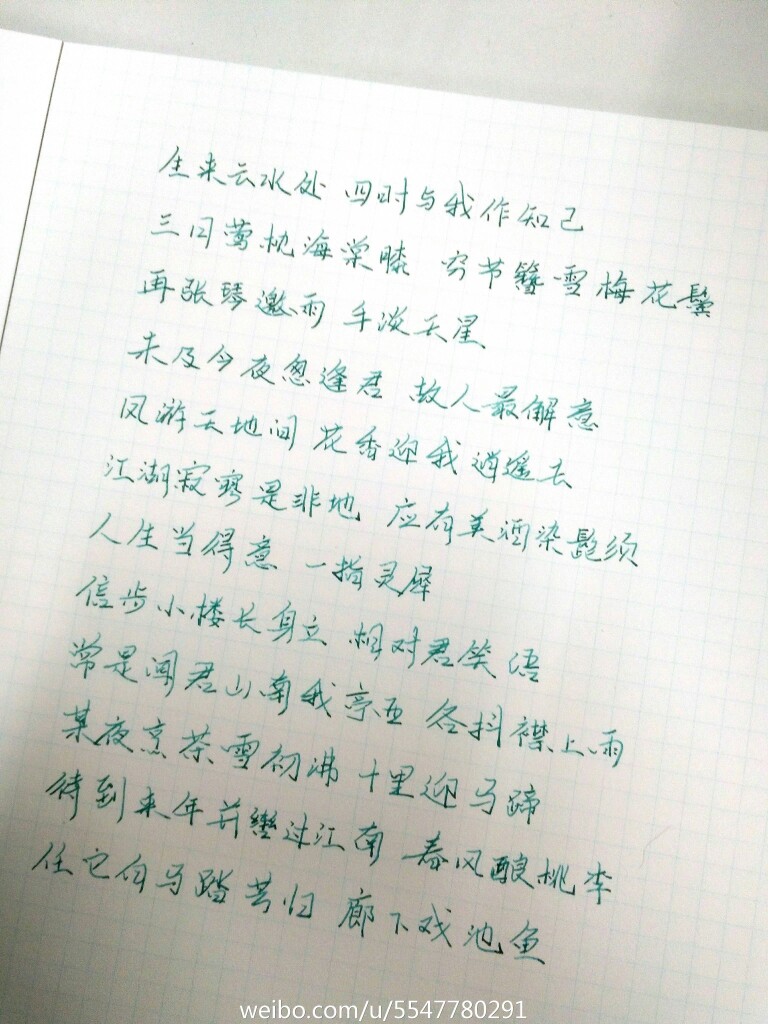 生来云水处 四时与我作知己
三日莺枕海棠膝 穷节簪雪梅花鬓
再张琴邀雨 手谈天星
未及今夜忽逢君 故人最解意
风游天地间 花香迎我逍遥去
江湖寂寥是非地 应有美酒染髭须
人生当得意 一指灵犀
信步小楼长身立 相对君笑语
常是闻君山南我亭西 各抖襟上雨
某夜烹茶雪初沸 十里迎马蹄
待到来年并辔过江南 春风酿桃李
任它白马踏芳归 廊下戏池鱼
weibo.com/u/5547780291